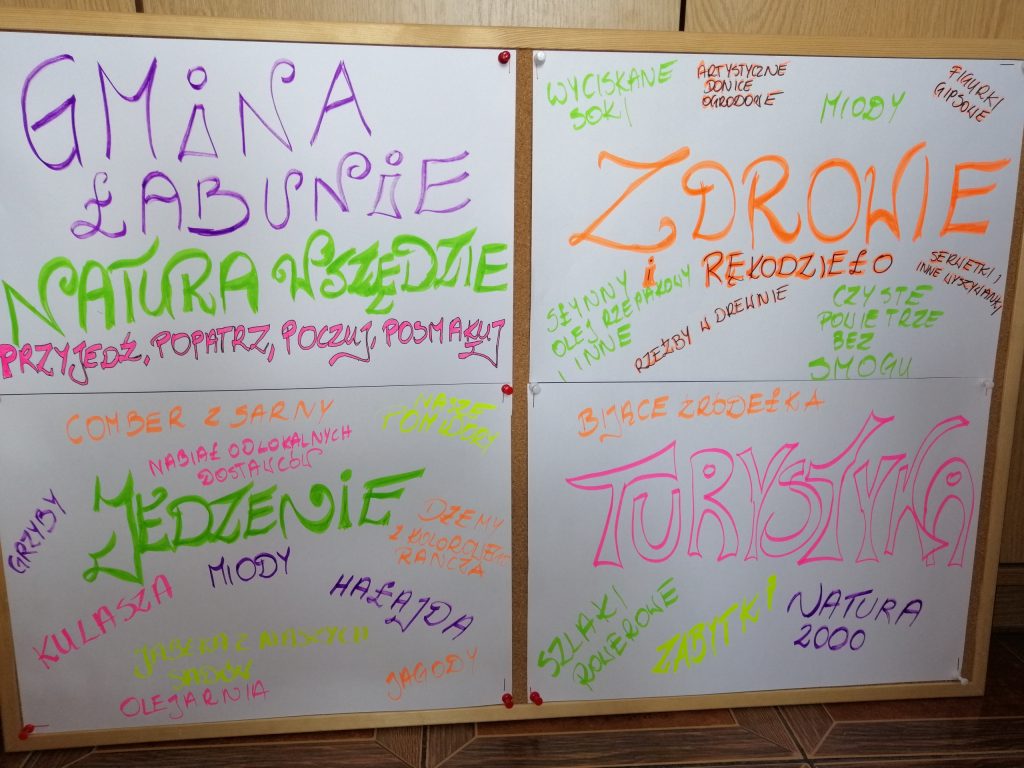 GMINA
ŁABUNIE
NATURA WSZĘDZIE
PRZYJEDŹ, POPATRZ, POCZUJ, POSMAKUJ
WYCISKANE
SOKI
ARTYSTYCZNE
DONICE
OGRODOWE
MIODY
FIGURKI
GIPSOWE
ZDROWIE
i RĘKODZIEŁO
SERWETKI I
INNE WYSZYWANKI
SŁYNNY
OLEJ RZEPAKOWY
I INNE
RZEŹBY W DREWNIE
CZYSTE
POWIETRZE
BEZ
SMOGU
COMBER Z SARNY
NASZE
POMIDORY
NABIAŁ OD LOKALNYCH
DOSTAWCÓW
JEDZENIE
GRZYBY
MIODY
DŻEMY
Z KOLOROWEGO
RANCZA
KULASZA
HAŁAJDA
JABŁKA Z NASZYCH
SADÓW
OLEJARNIA
JAGODY
BIJĄCE ŹRÓDEŁKA
TURYSTYKA
SZLAKI
ROWEROWE
ZABYTKI
NATURA
2000